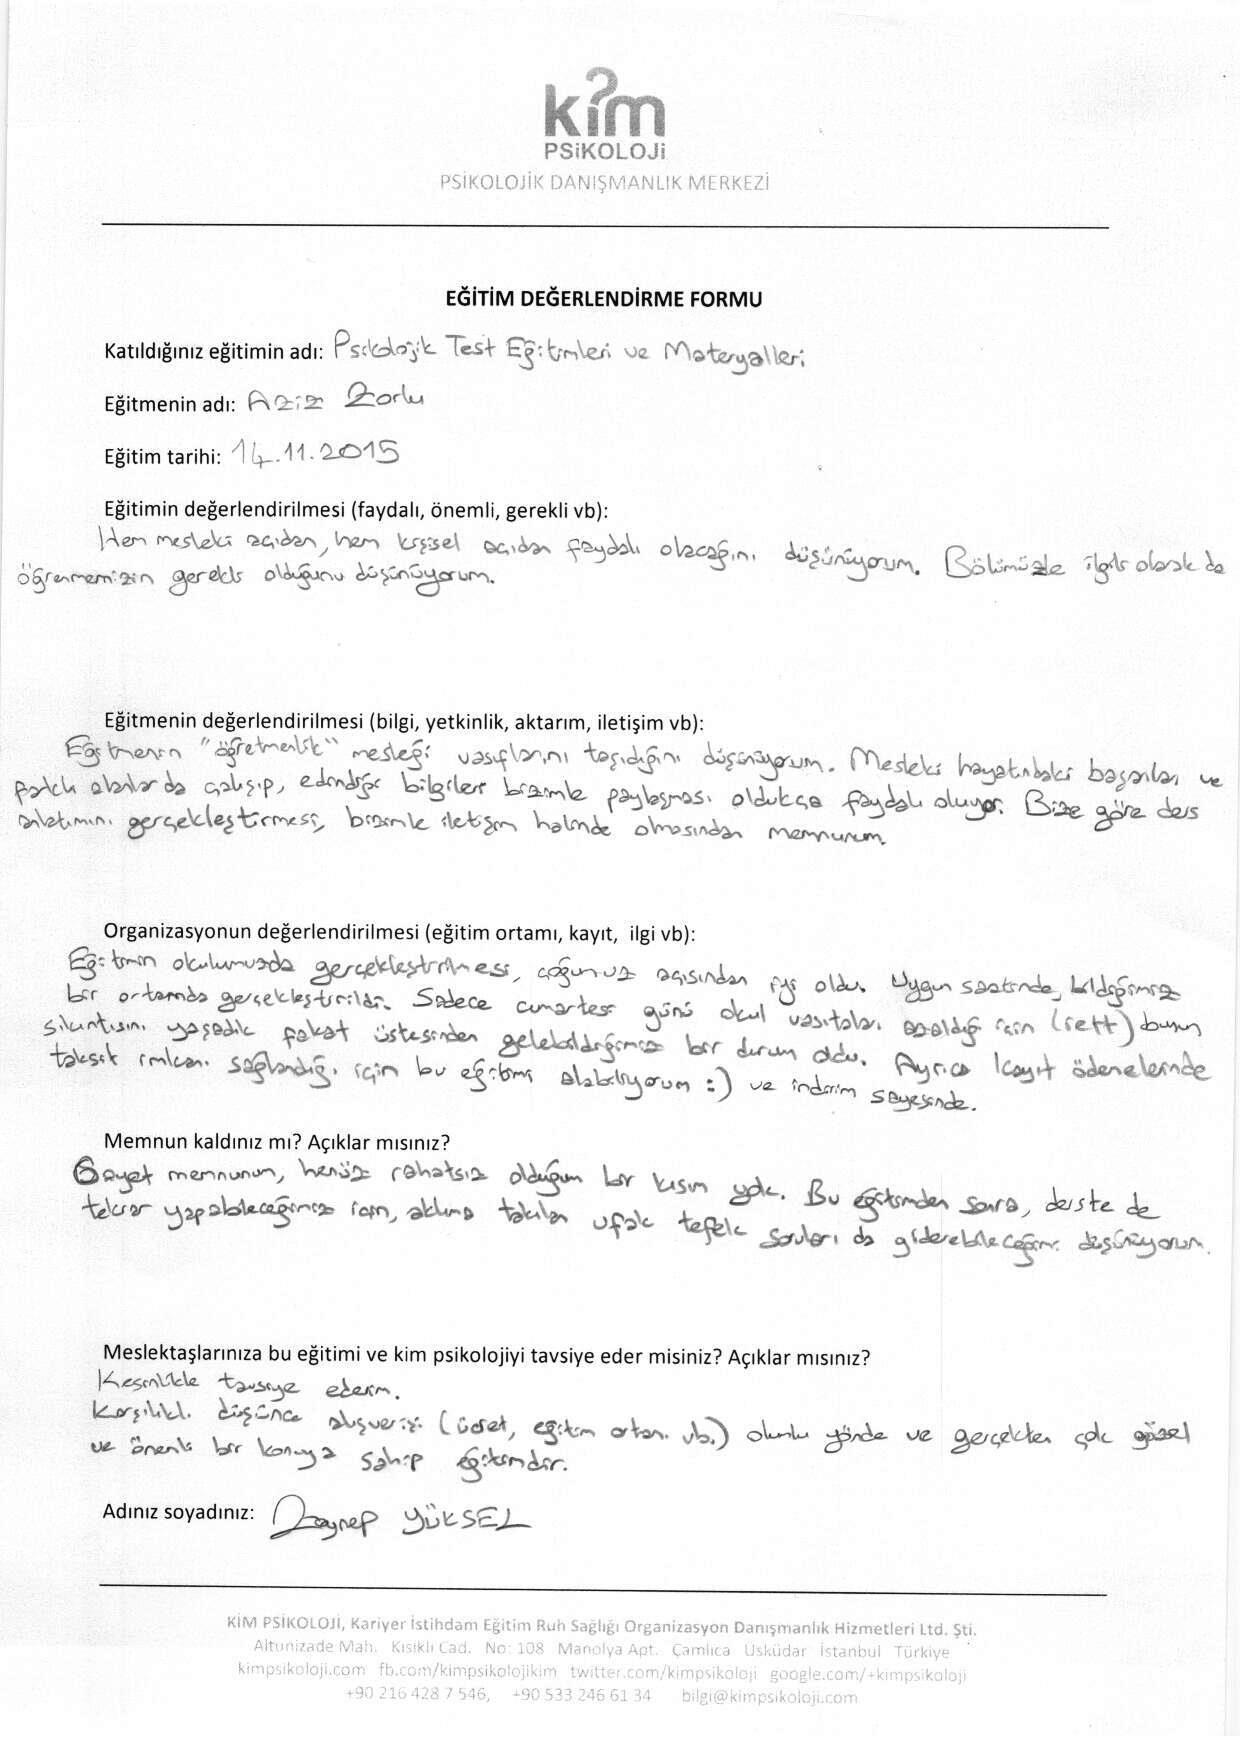 kim
PSiKOLOJi
PSİKOLOJİK DANIŞMANLIK MERKEZİ
EĞİTİM DEĞERLENDİRME FORMU
Katıldığınız eğitimin adı: Psikolojik Test Eğitimleri ve Materyalleri
Eğitmenin adı: Aziz Zorlu
Eğitim tarihi: 14.11.2015
Eğitimin değerlendirilmesi (faydalı, önemli, gerekli vb):
Hem mesleki açıdan, hem kişisel açıdan faydalı olacağını düşünüyorum. Bölümüzle ilgili olarak da
öğrenmemizin gerekli olduğunu düşünüyorum.
Eğitmenin değerlendirilmesi (bilgi, yetkinlik, aktarım, iletişim vb):
Eğitmenin "öğretmenlik" mesleği vasıflarını taşıdığını düşünüyorum. Mesleki hayatındaki başarıları ve
farklı alanlarda çalışıp, edindiği bilgileri bizimle paylaşması oldukça faydalı oluyor. Bize göre ders
anlatımını gerçekleştirmesi, bizimle iletişim halinde olmasından memnunum.
Organizasyonun değerlendirilmesi (eğitim ortamı, kayıt, ilgi vb):
Eğitimin okulumuzda gerçekleştirilmesi, çoğunuz açısından iyi oldu. Uygun saatinde, bildiğimiz
bir ortamda gerçekleştirildi. Sadece cumartesi günü okul vasıtaları azaldığı için (iett) bunun
sıkıntısını yaşadık fakat üstesinden gelebildiğimiz bir durum oldu. Ayrıca kayıt ödenelerinde
taksit imkanı sağlandığı için bu eğitimi alabiliyorum :) ve indirim sayesinde.
Memnun kaldınız mı? Açıklar mısınız?
Gayet memnunum, henüz rahatsız olduğum bir kısım yok. Bu eğitimden sonra, derste de
tekrar yapabileceğimiz için, aklıma takılan ufak tefek soruları da giderebileceğimi düşünüyorum.
Meslektaşlarınıza bu eğitimi ve kim psikolojiyi tavsiye eder misiniz? Açıklar mısınız?
Kesinlikle tavsiye ederim.
Karşılıklı düşünce alışverişi (ücret, eğitim ortamı vb.) olumlu yönde ve gerçekten çok güzel
ve önemli bir konuya sahip eğitimdir.
Adınız soyadınız: Zeynep YÜKSEL
KİM PSİKOLOJİ, Kariyer İstihdam Eğitim Ruh Sağlığı Organizasyon Danışmanlık Hizmetleri Ltd. Şti.
Altunizade Mah. Kısıklı Cad. No: 108 Manolya Apt. Çamlıca Üsküdar İstanbul Türkiye
kimpsikoloji.com fb.com/kimpsikolojikim twitter.com/kimpsikoloji google.com/+kimpsikoloji
+90 216 428 7 546, +90 533 246 61 34 bilgi@kimpsikoloji.com